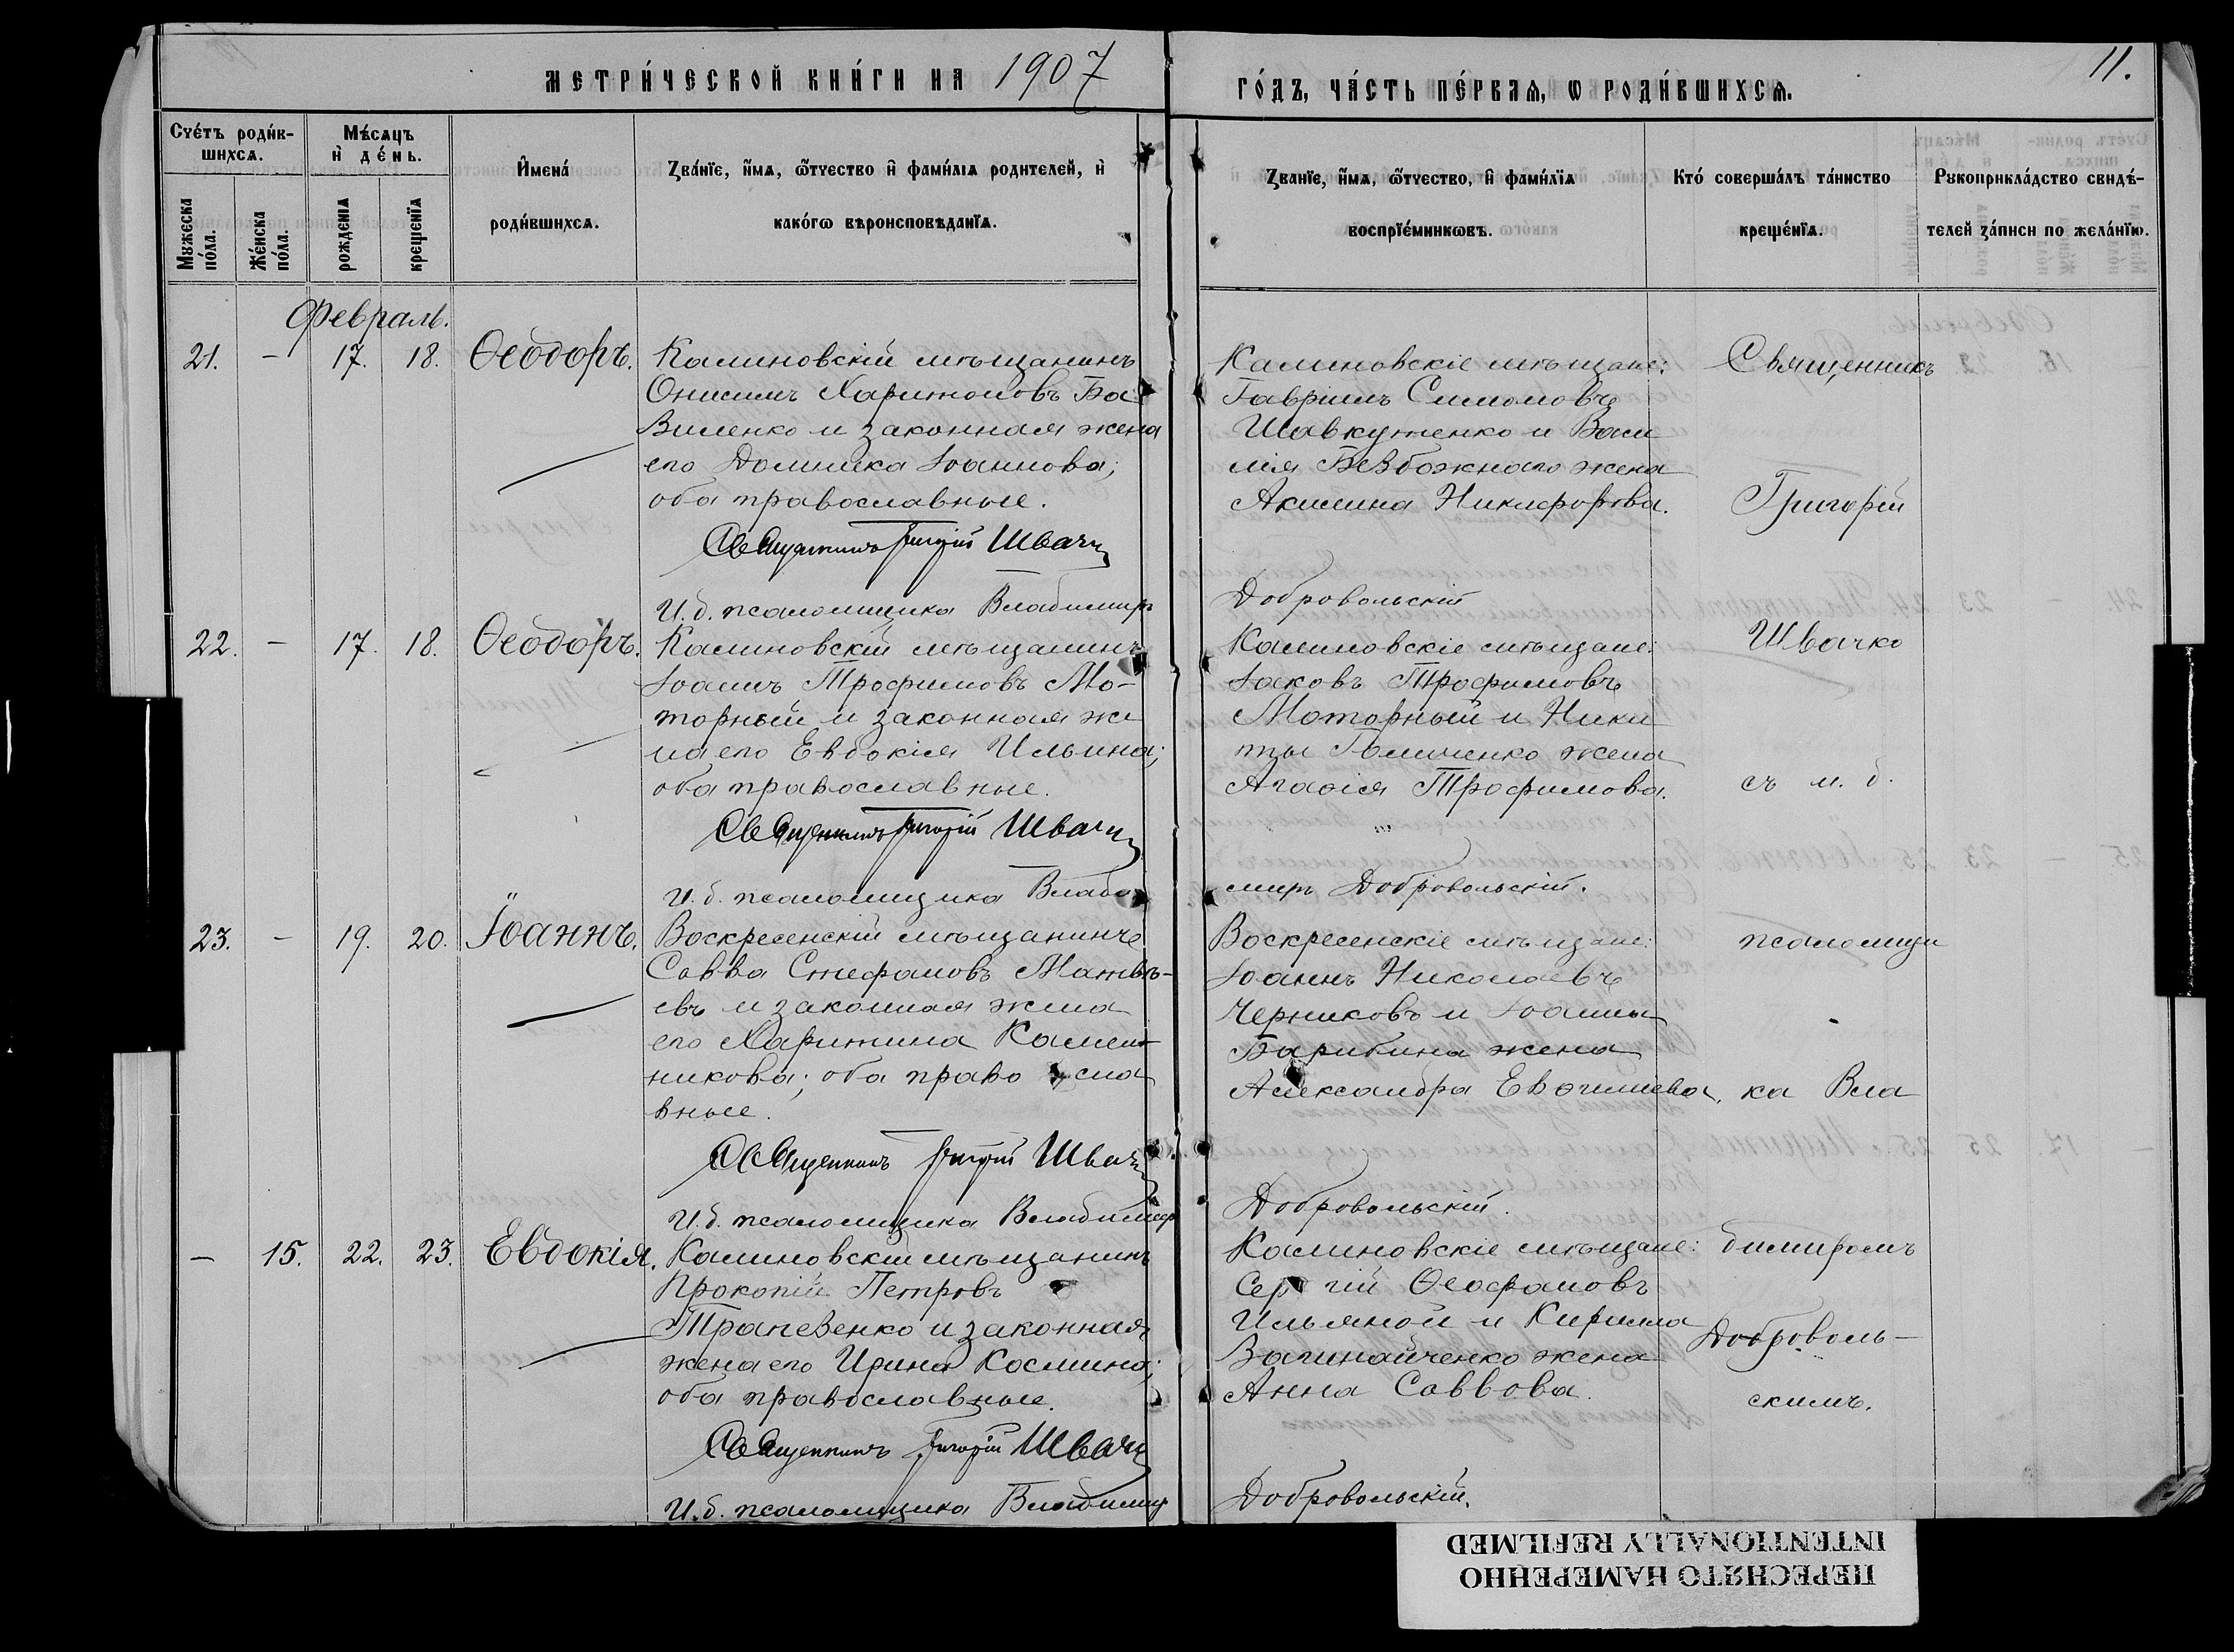 МЕТРИ́ЧЕСКОЙ КНИ́ГИ НА 1907
ГО́ДЪ, ЧА́СТЬ ПЕ́РВАЯ, Ѡ РОДИ́ВШИХСѦ.
11.
Счéтъ роди́в-
шихсѧ.
Мѣ́сѧцъ
и҆ де́нь.
И҆мена́
роди́вшихсѧ.
Зва́нїе, и҆́мѧ, ѻ҆́тчество и҆ фами́лїѧ родителей, и҆
како́гѡ вѣроисповѣданїѧ.
Мужеска
по́ла.
Же́нска
по́ла.
рожденїѧ
крещенїѧ
Званїе, и҆́мѧ, ѻ҆́тчество, и҆ фами́лїѧ
воспрїе́мникѡвъ.
Кто́ соверша́лъ та́инство
креще́нїѧ.
Рꙋкоприкла́дство свидѣ́-
телей за́писи по жела́нїю.
Февраль.
21. – 17. 18. Ѳеодоръ.
Калиновскій мѣщанинъ
Онисимъ Харитоновъ Ба
виленко и законная жена
его Домника Іоаннова;
оба православные.
Священникъ Григорій Швачк
И. д. псаломщика Владимир
Калиновскіе мѣщане:
Гавріилъ Симоновъ
Шавкутенко и Васи
лія Безбожнаго жена
Акилина Никифорова.
Добровольскій
Священникъ
Григорій
22. – 17. 18. Ѳеодоръ.
Калиновскій мѣщанинъ
Іоаннъ Трофимовъ Мо-
торный и законная же
на его Евдокія Ильина;
оба православные.
Священникъ Григорій Швачк
И. д. псаломщика Влади
Калиновскіе мѣщане:
Іаковъ Трофимовъ
Моторный и Ники
ты жена
Агаѳія Трофимова.
миръ Добровольскій.
Швачко
съ и. д.
23. – 19. 20. Іоаннъ.
Воскресенскій мѣщанинъ
Савва Стефановъ Матвѣ-
евъ и законная жена
его Харитина Камен-
никова; оба право сла
вные.
Священникъ Григорій Швачк
И. д. псаломщика Владимир
Воскресенскіе мѣщане:
Іоаннъ Николаевъ
Черниковъ и Іоанна
Барибина жена
Александра
Добровольскій.
псаломщи
ка Вла
– 15. 22. 23. Евдокія.
Калиновскій мѣщанинъ
Прокопій Петровъ
Трапезенко и законная
жена его Ирина Космина;
оба православные.
Священникъ Григорій Швачк
И. д. псаломщика Владимир
Калиновскіе мѣщане:
Сергій Ѳеофановъ
Ильяной и Кирилла
жена
Анна Саввова.
Добровольскій.
димиромъ
Доброволь-
скимъ.
ПЕРЕСНЯТО НАМЕРЕННО
INTENTIONALLY REFILMED